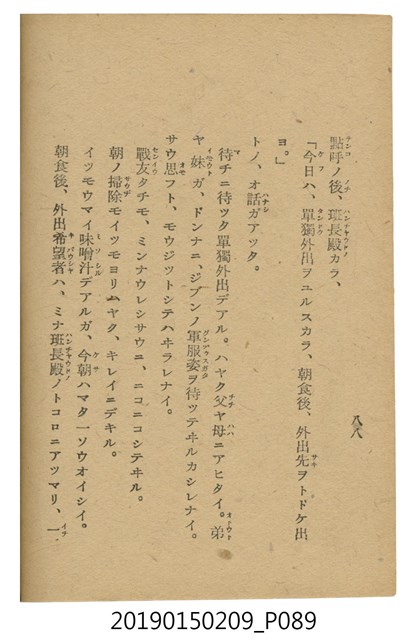 八八
點呼ノ後、班長殿カラ、
「今日ハ、單獨外出ヲユルスカラ、朝食後、外出先ヲトドケ出
ヨ。」
トノ、オ話ガアッタ。
待チニ待ッタ單獨外出デアル。ハヤク父ヤ母ニアヒタイ。弟
ヤ妹ガ、ドンナニ、ジブンノ軍服姿ヲ待ッテヰルカシレナイ。
サウ思フト、モウジットシテハヰラレナイ。
戰友タチモ、ミンナウレシサウニ、ニコニコシテヰル。
朝ノ掃除モイツモヨリハヤク、キレイニデキル。
イツモウマイ味噌汁デアルガ、今朝ハマタ一ソウオイシイ。
朝食後、外出希望者ハ、ミナ班長殿ノトコロニアツマリ、一
20190150209_P089